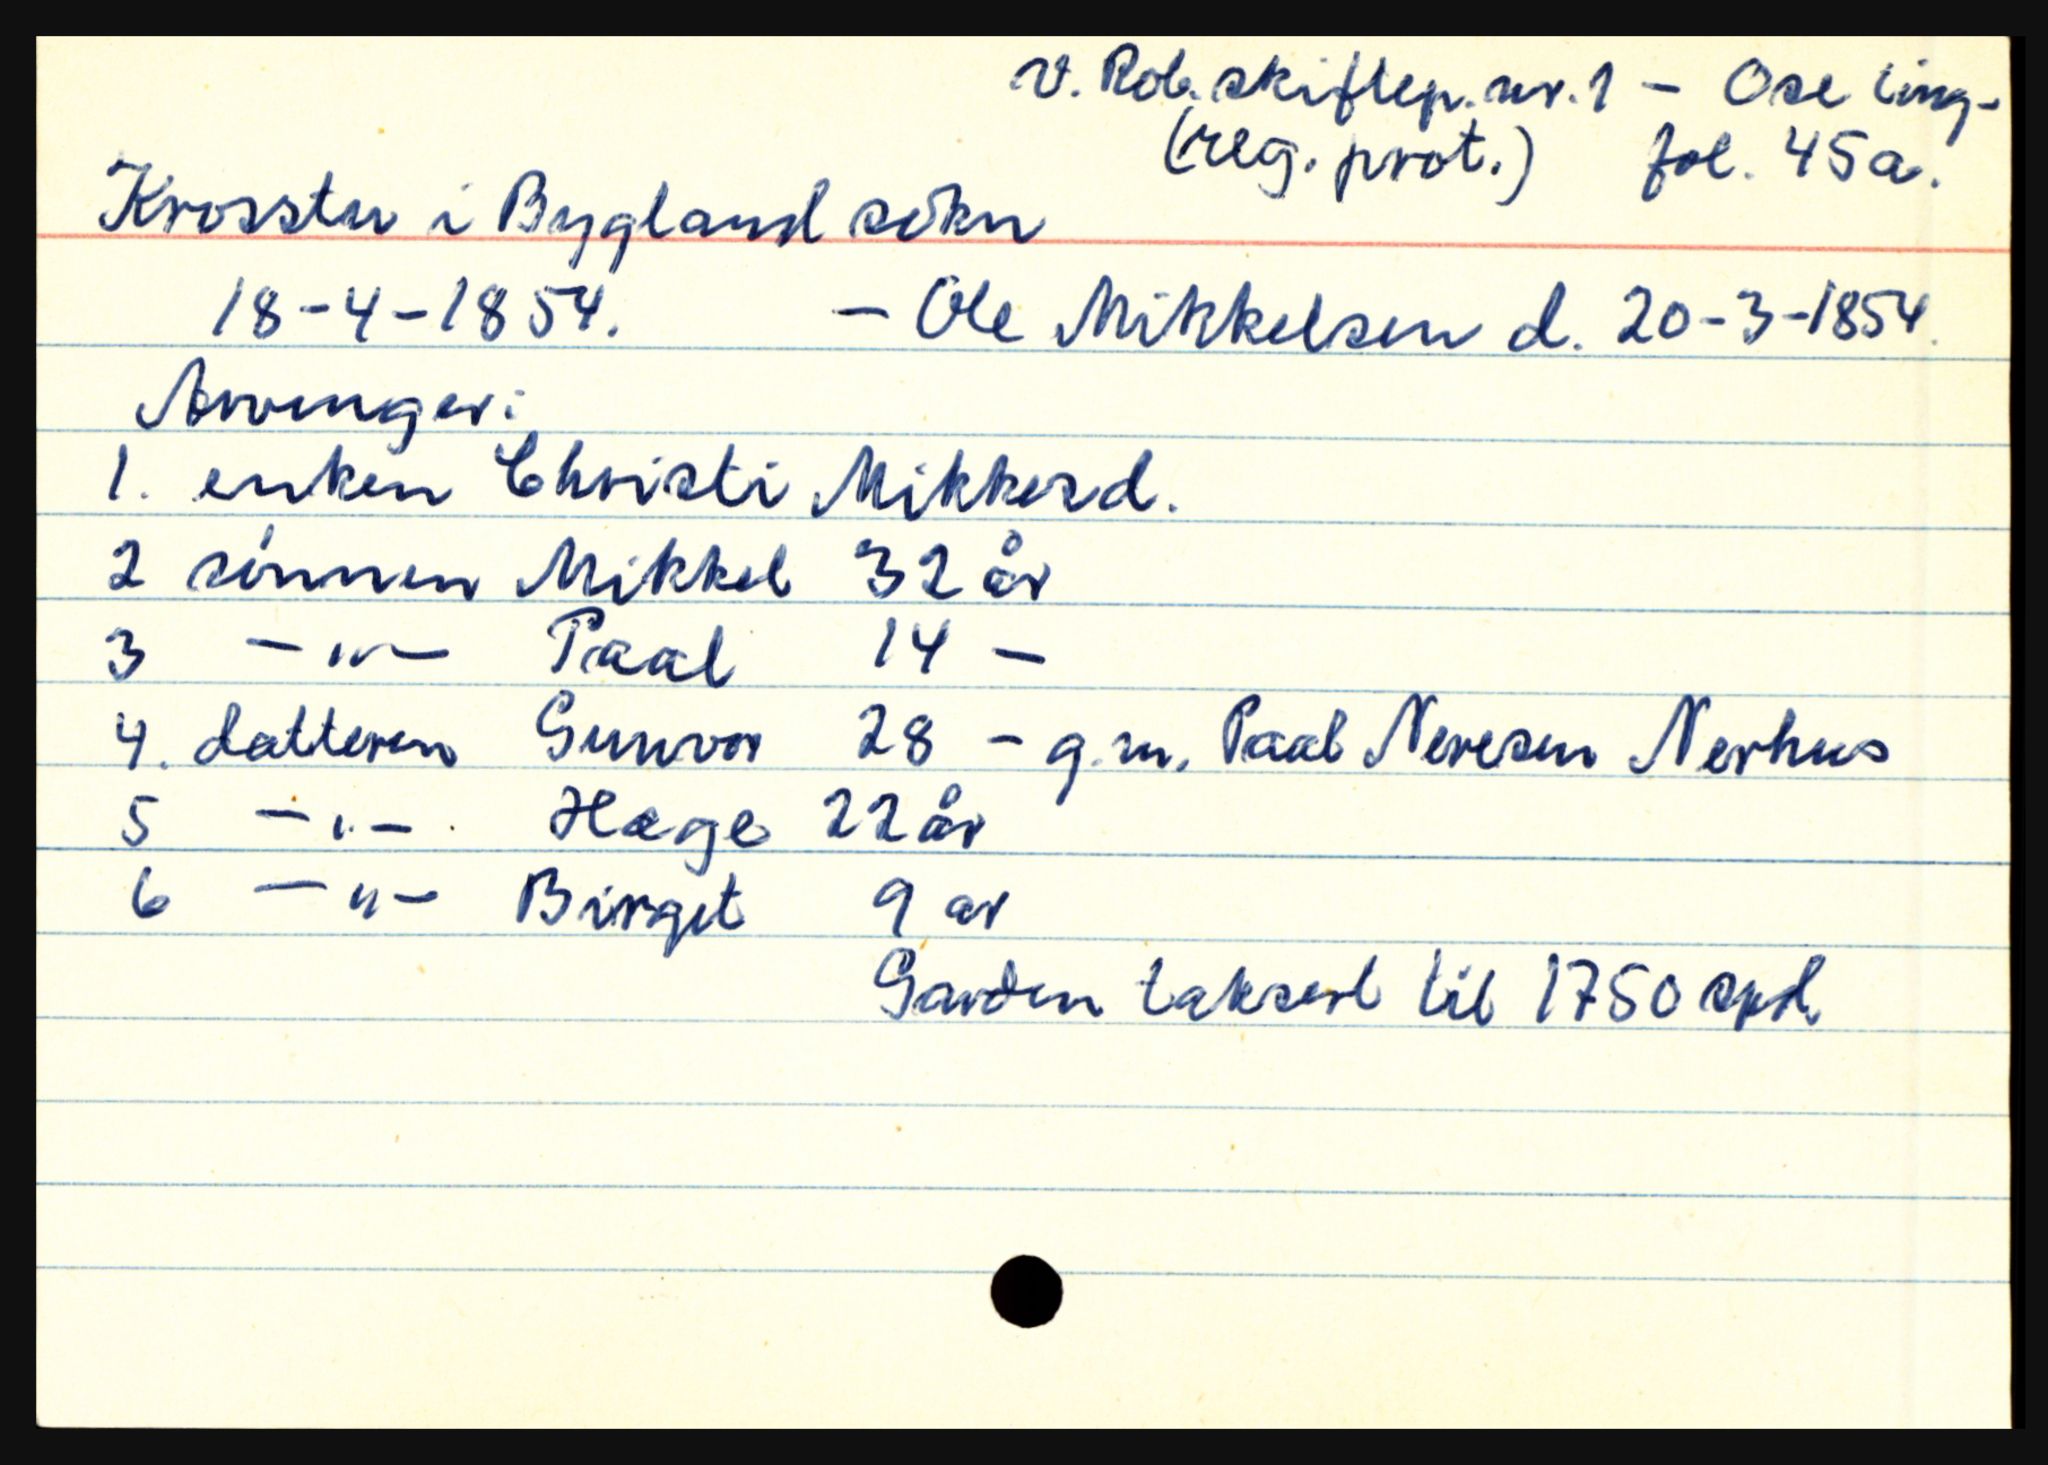 v. Rob. skiftep. nr. 1 - Ose ting-
(reg. prot.) fol. 45a.
Krosstu i Bygland sökn
18-4-1854. - Ole Mikkelsen d. 20-3-1854.
Arvinger:
1. enken Christi Mikkesd.
2 sönnen Mikkel 32 år
3 -"- Paal 14 -
4. datteren Gunvor 28 - g.m. Paal Neresen Nerhus
5 -"- Hæge 22 år
6 -"- Birget 9 ar
Garden taksert til 1750 spd.